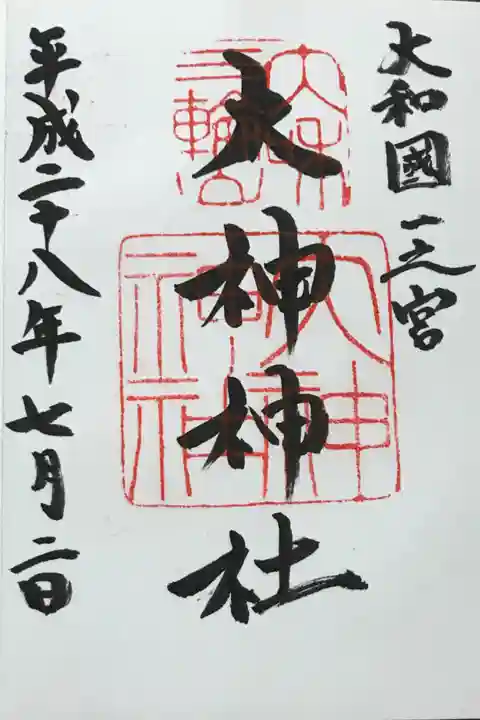 大和國一之宮
三輪
大神神社
大神神社
平成二十八年七月二日